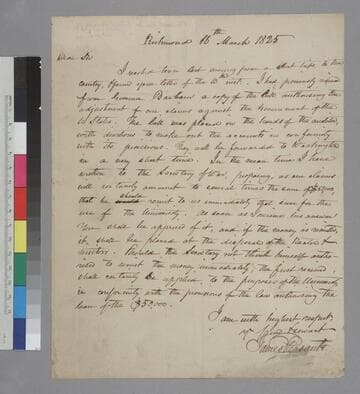 Richmond 16th March 1825
Dear Sir
I reached town last evening from a short trip to the
country, & found your letter of the 10th inst. I had previously received
from Governor Barbour a copy of the bill authorising the
adjustment of our claims against the Government of the
U States. The bill was placed in the hands of the auditor,
with directions to make out the accounts in conformity
with its provisions. They will be forwarded to Washington
in a very short time. In the mean time I have
written to the Secretary of War, proposing, as our claims
will certainly amount to several times the sum of $50,000,
that he should remit to us immediately that sum for the
use of the University. As soon as I receive his answer
You shall be apprised of it, and if the money is remitted,
it shall be placed at the disposal of the Rector &
visitors. Should the Secretary not think himself autho-
rised to remit the money immediately, the first received
shall certainly be applied, to the purposes of the University
in conformity with the provisions of the law authorising the
loan of the $50,000.
I am with highest respect
yr. obt. servant
James Pleasants